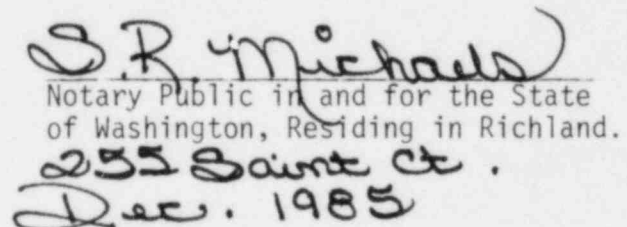 S.R. Michaels
Notary Public in and for the State
of Washington, Residing in Richland.
255 Saint Ct.
Dec. 1985